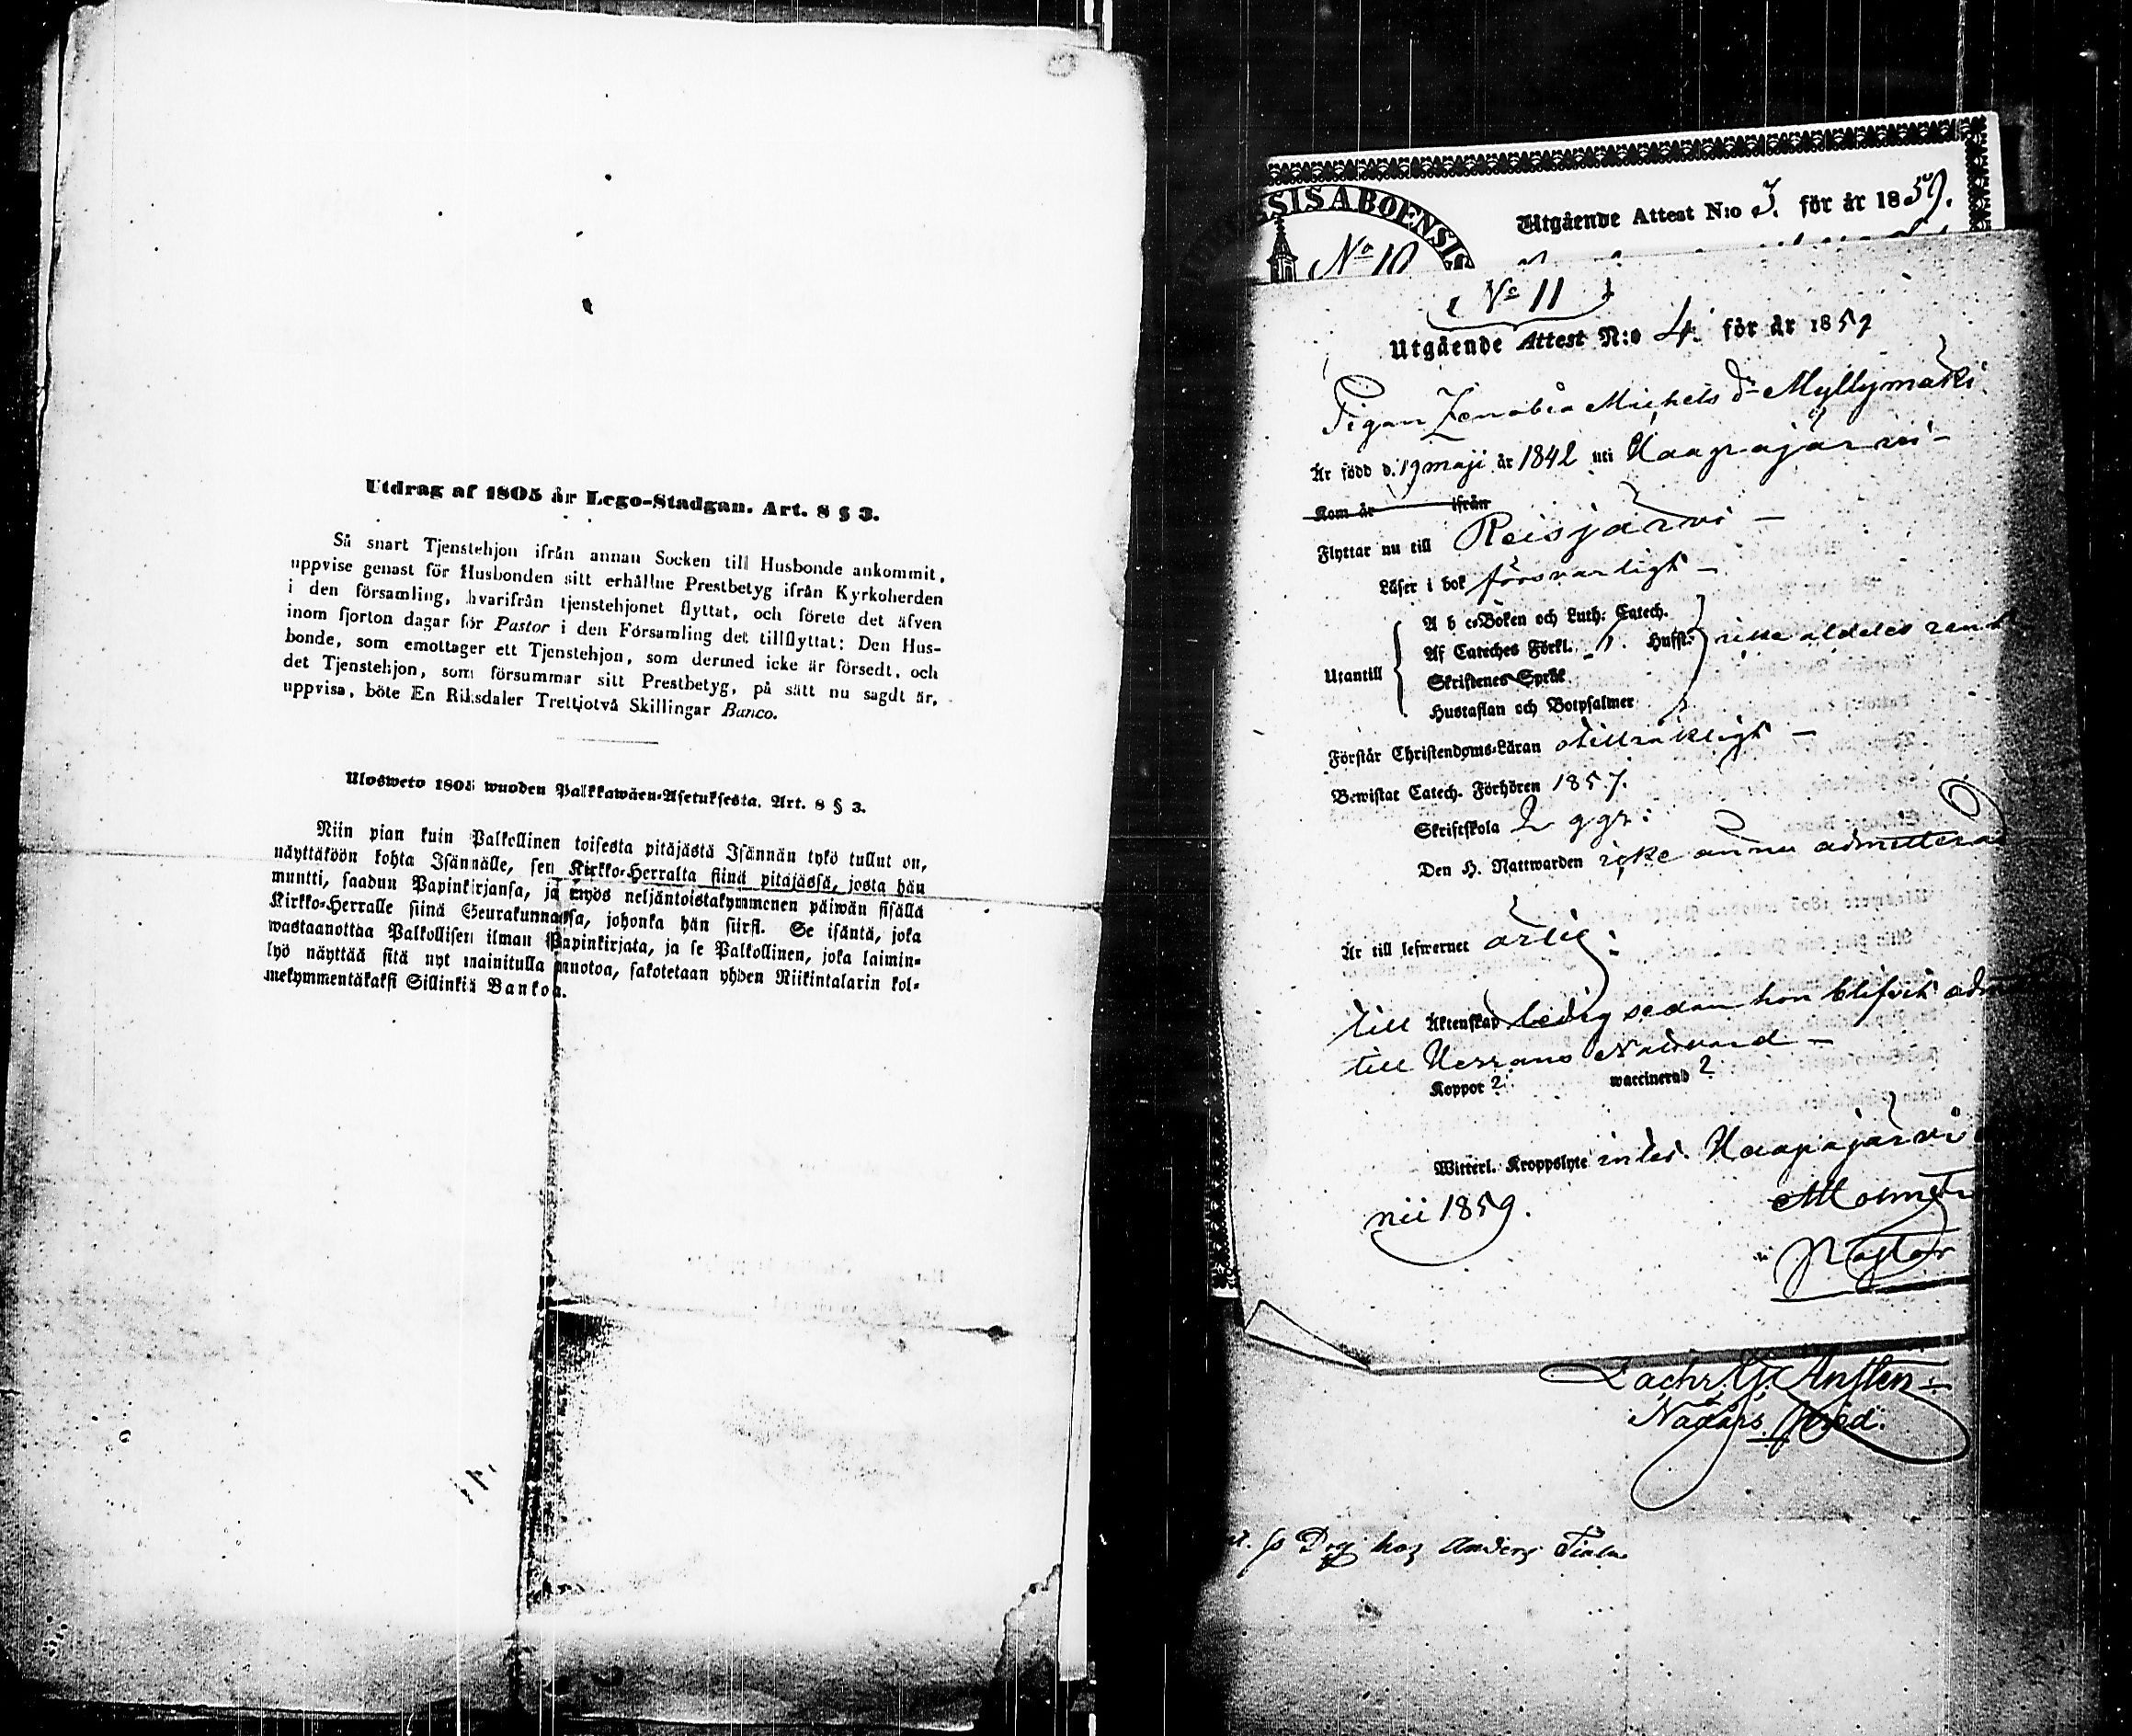 Utdrag af 1805 år Lego-Stadgan. Art. 8 § 3.
Så snart Tjenstehjon ifrån annan Socken till Husbonde ankommit,
uppvise genast för Husbonden sitt erhållne Prestbetyg ifrån Kyrkoherden
i den församling, hvarifrån tjenstehjonet flyttat, och förete det äfven
inom fjorton dagar för Pastor i den Församling det tillflyttat: Den Hus-
bonde, som emottager ett Tjenstehjon, som dermed icke är försedt, och
det Tjenstehjon, som försummar sitt Prestbetyg, på sätt nu sagdt är,
uppvisa, böte En Riksdaler Trettiotvå Skillingar Banco.
Uloswето 1805 wuoden Palkkawäen-Asetuksesta. Art. 8 § 3.
Niin pian kuin Palkollinen toisesta pitäjästä Isännän tykö tullut on,
näyttäköön kohta Isännälle, sen Kirkko-Herralta siinä pitäjässä, josta hän
muutti, saadun Papinkirjansa, ja myös neljäntoistakymmenen päiwän sisällä
Kirkko-Herralle siinä Seurakunnassa, johonka hän siirsi. Se isäntä, joka
wastaanottaa Palkollisen ilman Papinkirjata, ja se Palkollinen, joka laimin-
lyö näyttää sitä nyt mainitulla muotoa, sakotetaan yhden Riikintalarin kol-
mekymmentäkaksi Sillinkiä Bankoa.
SIS ABOENSIS
No 10
Utgående Attest N:o 3. för år 1859.
No 11
Utgående Attest N:o 4. för år 1859
Pigan Zenobia Michels dr Myllymäki
Är född d. 19 maji år 1842 uti Haapajärvi -
Kom år ifrån
Flyttar nu till Reisjärvi -
Läser i bok försvarligt -
A b c-Boken och Luth: Catech.
Af Cateches Förkl. Hufst:
icke aldeles rent
Utantill
Skriftenes Språk
Hustaflan och Botpsalmer
Förstår Christendoms-Läran otillräkligt -
Bewistat Catech. Förhören 1857.
Skriftskola 2 ggr:
Den H. Nattwarden icke ännu admitterad
Är till lefwernet ärlig:
till Äktenskap ledig sedan hon blifvit adm
till Herrans Nattvard -
Koppor ? waccinerad ?
Witterl. Kroppslyte intet. Haapajärvi
1859.
Pastor
Zachr. Anflen
Nådårs Pred.
hos Anders